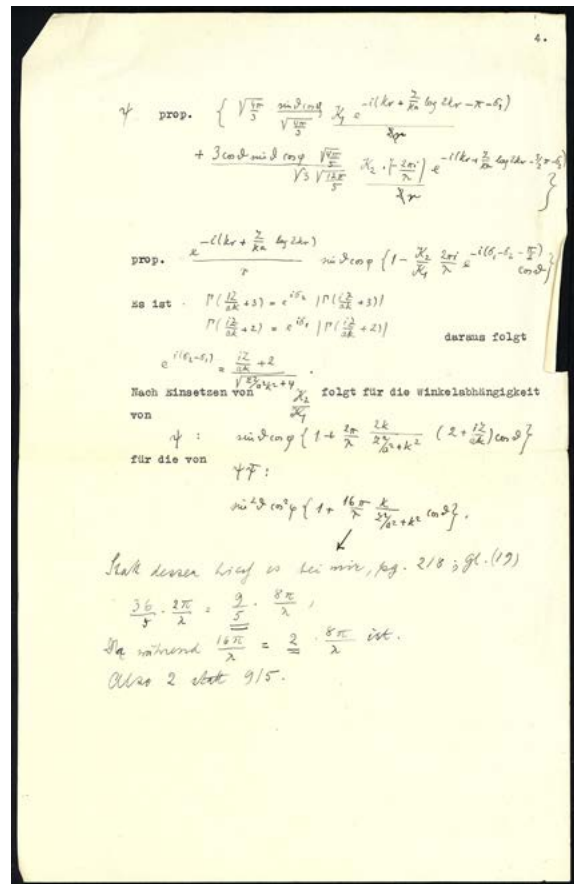 4.
ψ prop. { √(4π/3) sinϑ cosφ / √(4π/3) K₁ e^{-i(kr + Z/ka log 2kr - π - σ₁)} / 2r
+ 3 cosϑ sinϑ cosφ √(4π/5) / √3 √(12π/5) K₂ · (-2πi/λ) e^{-i(kr + Z/ka log 2kr - 3/2 π - σ₂)} / 2r }
prop. e^{-i(kr + Z/ka log 2kr)} / r sinϑ cosφ { 1 - K₂/K₁ 2πi/λ e^{-i(σ₁-σ₂-π/2)} cosϑ }
Es ist Γ(iZ/ak + 3) = e^{iσ₂} |Γ(iZ/ak + 3)|
Γ(iZ/ak + 2) = e^{iσ₁} |Γ(iZ/ak + 2)|
daraus folgt
e^{i(σ₂-σ₁)} = (iZ/ak + 2) / √(Z²/a²k² + 4) .
Nach Einsetzen von K₂/K₁ folgt für die Winkelabhängigkeit
von
ψ : sinϑ cosφ { 1 + 2π/λ 2k/(Z²/a² + k²) (2 + iZ/ak) cosϑ }
für die von
ψψ̄ :
sin²ϑ cos²φ { 1 + 16π/λ k/(Z²/a² + k²) cosϑ }.
Statt dessen hiess es bei mir, pg. 218; Gl. (19)
36/5 · 2π/λ = 9/5 · 8π/λ ,
während 16π/λ = 2 · 8π/λ ist.
Also 2 statt 9/5.